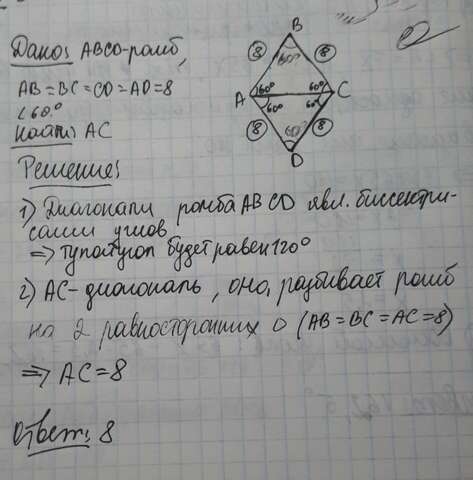 Дано: ABCD-ромб,
AB=BC=CD=AD=8
<60°
Найти: AC
B
8 8
60°
A 60° 60° C
60° 60°
8 60° 8
D
Решение:
1) Диагонали ромба ABCD явл. биссектри-
сами углов
=> тупой угол будет равен 120°
2) AC-диагональ, она, разбивает ромб
на 2 равносторонних △ (AB=BC=AC=8)
=> AC=8
Ответ: 8